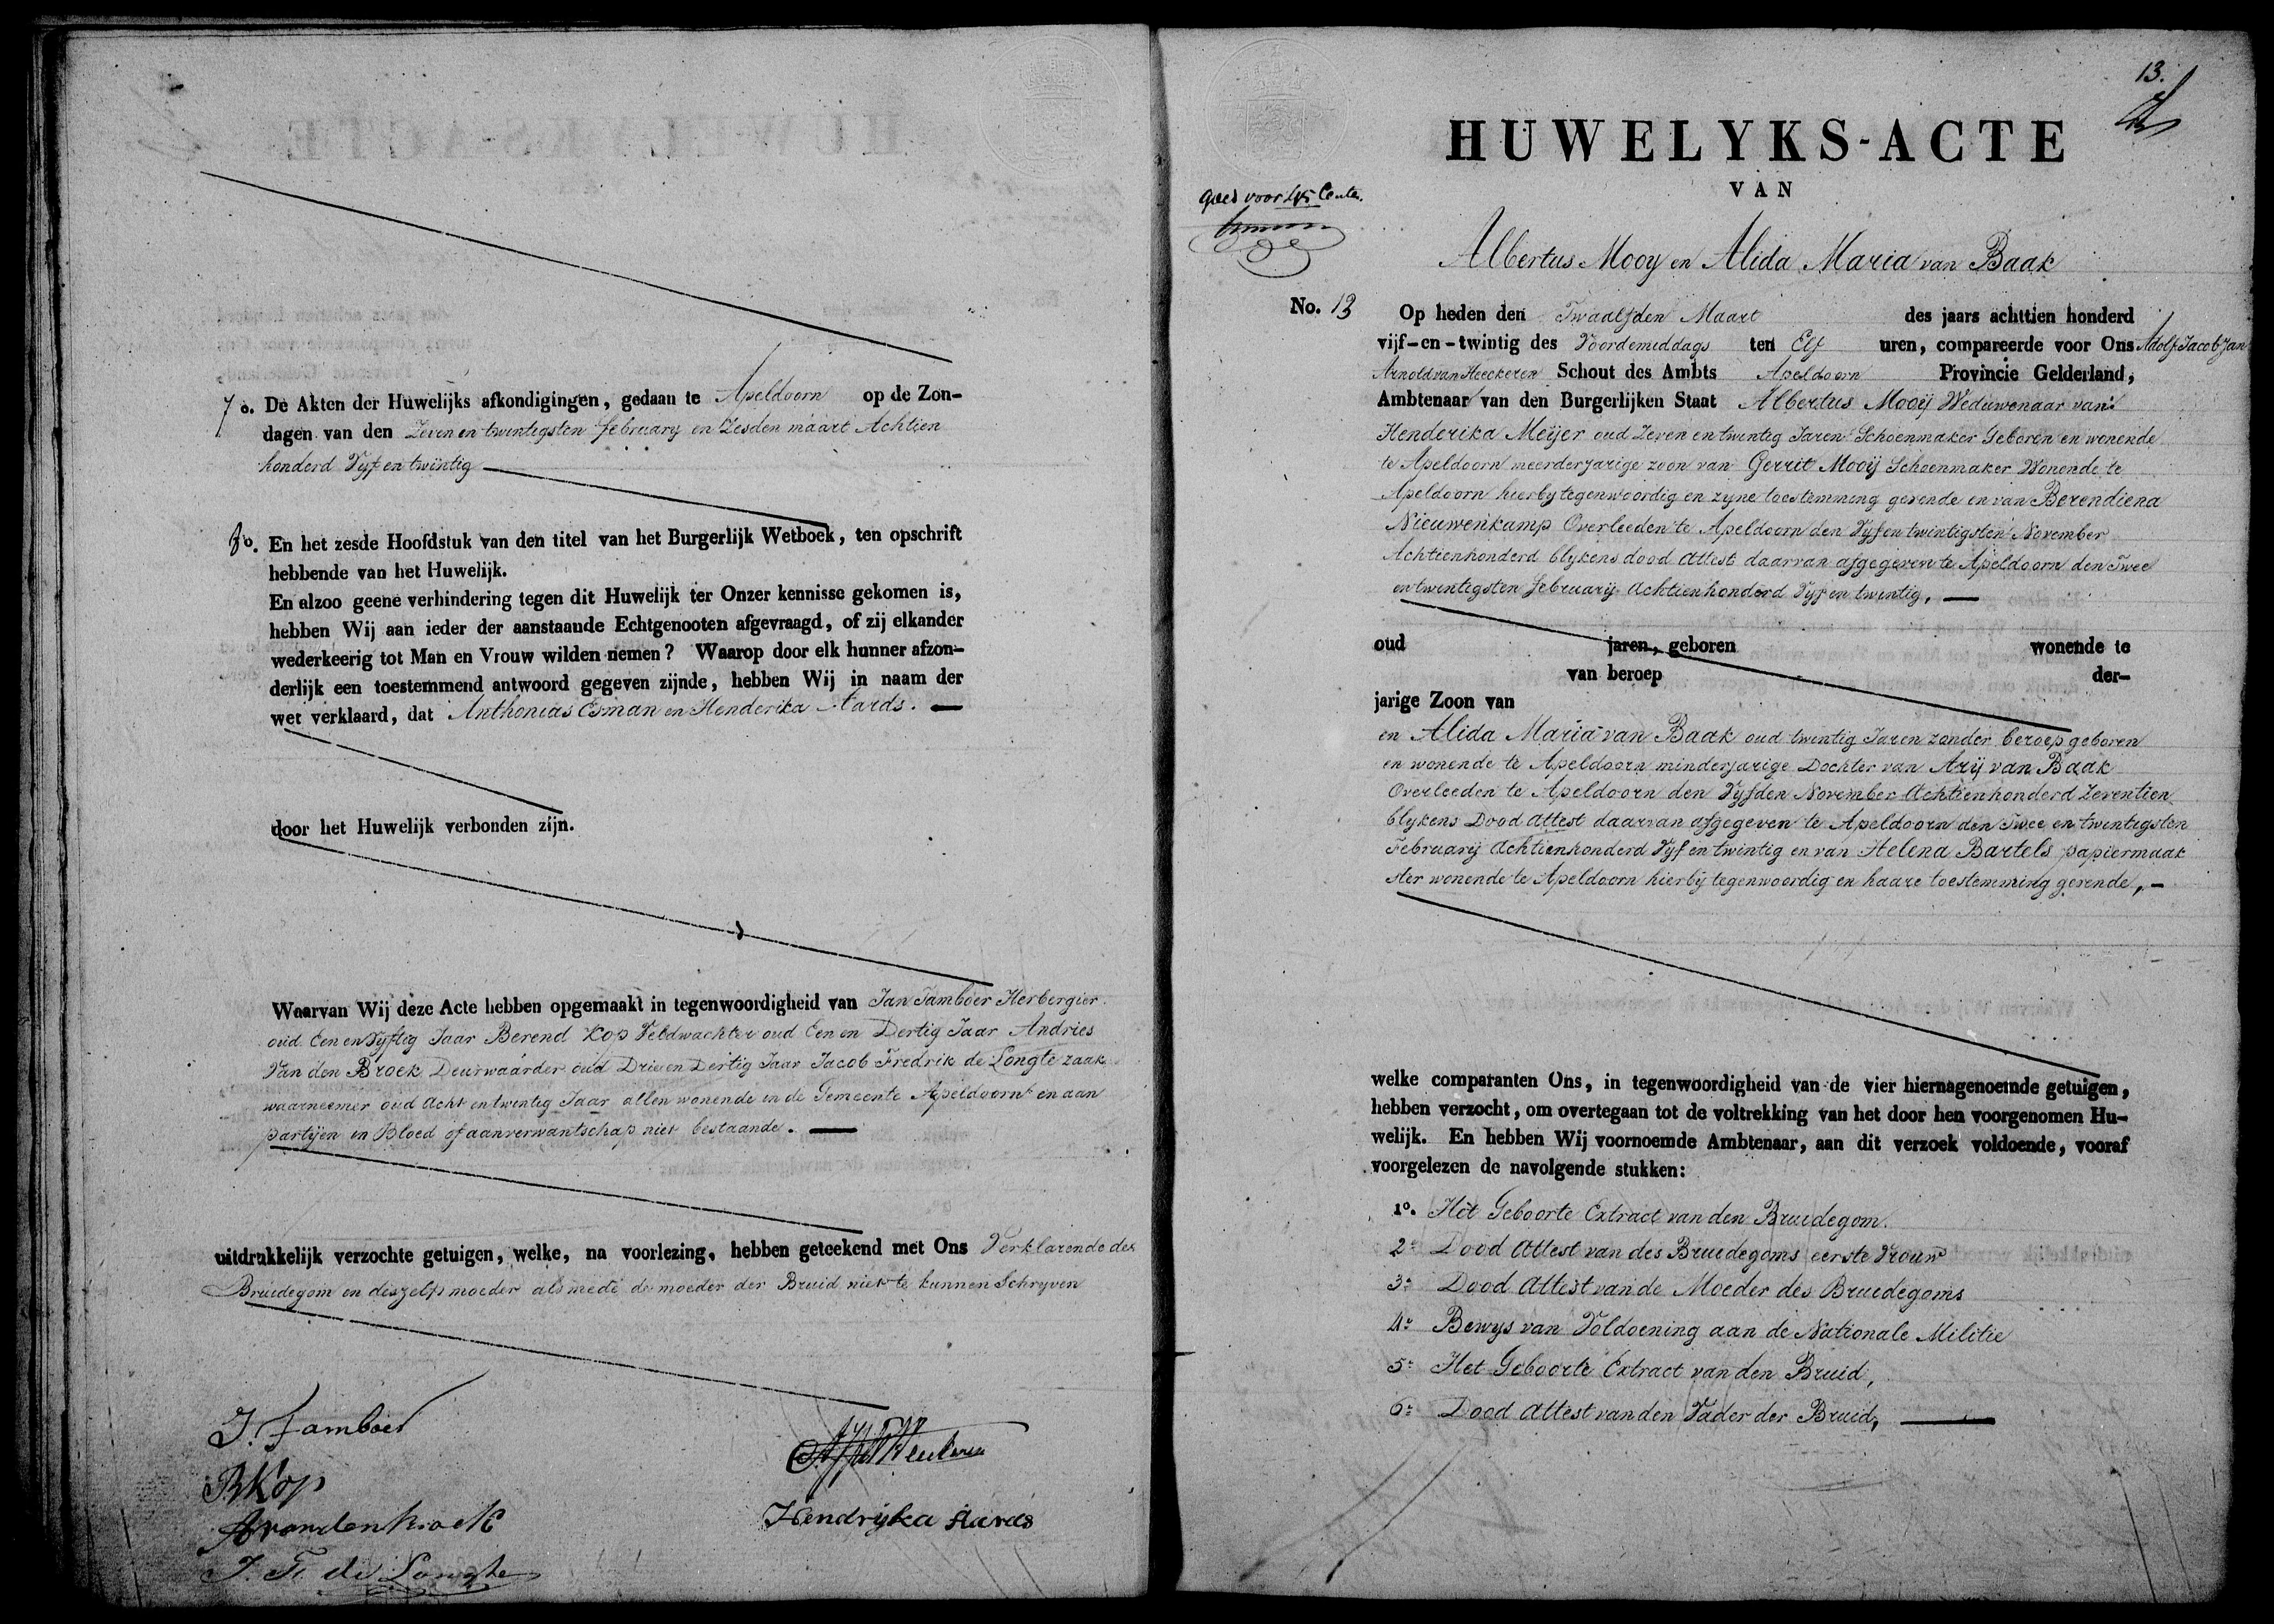 7o. De Akten der Huwelijks afkondigingen, gedaan te Apeldoorn op de Zon-
dagen van den Zeven en twintigsten february en Zesden maart Achtien
honderd Vyf en twintig
8o. En het zesde Hoofdstuk van den titel van het Burgerlijk Wetboek, ten opschrift
hebbende van het Huwelijk.
En alzoo geene verhindering tegen dit Huwelijk ter Onzer kennisse gekomen is,
hebben Wij aan ieder der aanstaande Echtgenooten afgevraagd, of zij elkander
wederkeerig tot Man en Vrouw wilden nemen? Waarop door elk hunner afzon-
derlijk een toestemmend antwoord gegeven zijnde, hebben Wij in naam der
wet verklaard, dat Anthonias Esman en Henderika Aards.
door het Huwelijk verbonden zijn.
Waarvan Wij deze Acte hebben opgemaakt in tegenwoordigheid van Jan Tamboer Herbergier
oud Een en Vyftig Jaar Berend Kop Veldwachter oud Een en Dertig Jaar Andries
Van den Broek Deurwaarder oud Drie en Dertig Jaar Jacob Fredrik de Longte zaak
waarneemer oud Acht en twentig Jaar allen wonende in de Gemeente Apeldoorn en aan
partijen in Bloed of aanverwantschap niet bestaande.
uitdrukkelijk verzochte getuigen, welke, na voorlezing, hebben geteekend met Ons Verklarende des
Bruidegom en deszelfs moeder als mede de moeder der Bruid niet te kunnen Schryven
J. Tamboer
B Kop
A vandenbroek
J. F. de Longte
Hendrijka Aards
13.
HUWELYKS-ACTE
VAN
goed voor 45 Cents.
Albertus Mooy en Alida Maria van Baak
No. 13 Op heden den Twaalfden Maart des jaars achttien honderd
vijf-en-twintig des Voordemiddags ten Elf uren, compareerde voor Ons Adolf Jacob Jan
Arnold van Heeckeren Schout des Ambts Apeldoorn Provincie Gelderland,
Ambtenaar van den Burgerlijken Staat Albertus Mooij Weduwenaar van
Henderika Meijer oud Zeven en twentig Jaren Schoenmaker Geboren en wonende
te Apeldoorn meerderjarige zoon van Gerrit Mooij Schoenmaker Wonende te
Apeldoorn hierby tegenwoordig en zyne toestemming gevende en van Berendiena
Nieuwenkamp Overleeden te Apeldoorn den Vyf en twintigsten November
Achtienhonderd blykens dood Attest daarvan afgegeven te Apeldoorn den Twee
en twentigsten february Achtienhonderd Vyf en twentig,
oud jaren, geboren wonende te
van beroep der-
jarige Zoon van
en Alida Maria van Baak oud twintig Jaren zonder beroep geboren
en wonende te Apeldoorn minderjarige Dochter van Arij van Baak
Overleeden te Apeldoorn den Vyfden November Achtienhonderd Zeventien
blykens Dood Attest daarvan afgegeven te Apeldoorn den Twee en twentigsten
February Achtienhonderd Vyf en twintig en van Helena Bartels papiermaak
ster wonende te Apeldoorn hierbij tegenwoordig en haare toestemming gevende,
welke comparanten Ons, in tegenwoordigheid van de vier hiernagenoemde getuigen,
hebben verzocht, om overtegaan tot de voltrekking van het door hen voorgenomen Hu-
welijk. En hebben Wij voornoemde Ambtenaar, aan dit verzoek voldoende, vooraf
voorgelezen de navolgende stukken:
1o. Het Geboorte Extract van den Bruidegom.
2o Dood Attest van des Bruidegoms eerste Vrouw
3o Dood Attest van de Moeder des Bruidegoms
4o Bewys van Voldoening aan de Nationale Militie
5o Het Geboorte Extract van den Bruid,
6o Dood Attest van den Vader der Bruid,